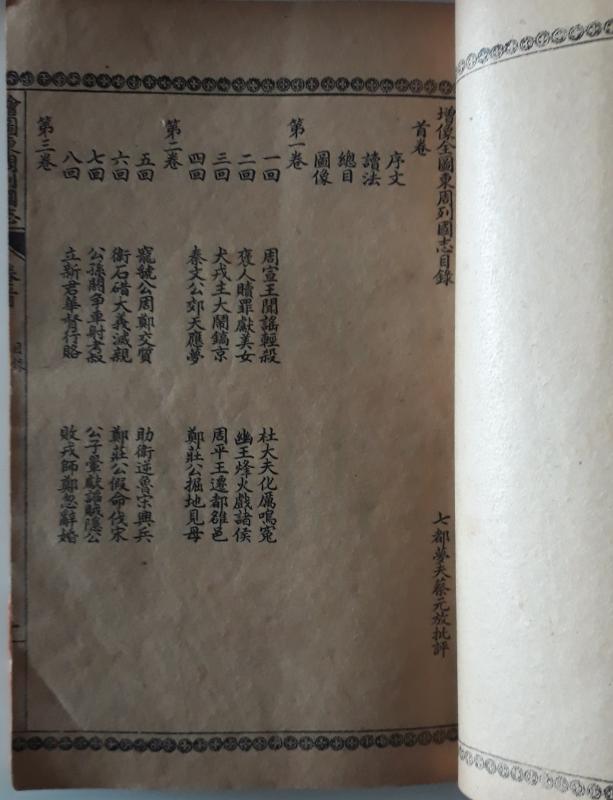 增像全圖東周列國志目錄
七都夢夫蔡元放批評
首卷
序文
讀法
總目
圖像
第一卷
一回 周宣王聞謠輕殺 杜大夫化厲鳴冤
二回 褒人贖罪獻美女 幽王烽火戲諸侯
三回 犬戎主大鬧鎬京 周平王遷都雒邑
四回 秦文公郊天應夢 鄭莊公掘地見母
第二卷
五回 寵虢公周鄭交質 助衛逆魯宋興兵
六回 衛石碏大義滅親 鄭莊公假命伐宋
七回 公孫閼爭車射考叔 公子翬獻諂賊隱公
八回 立新君華督行賂 敗戎師鄭忽辭婚
第三卷
繪圖東周列國志
目錄